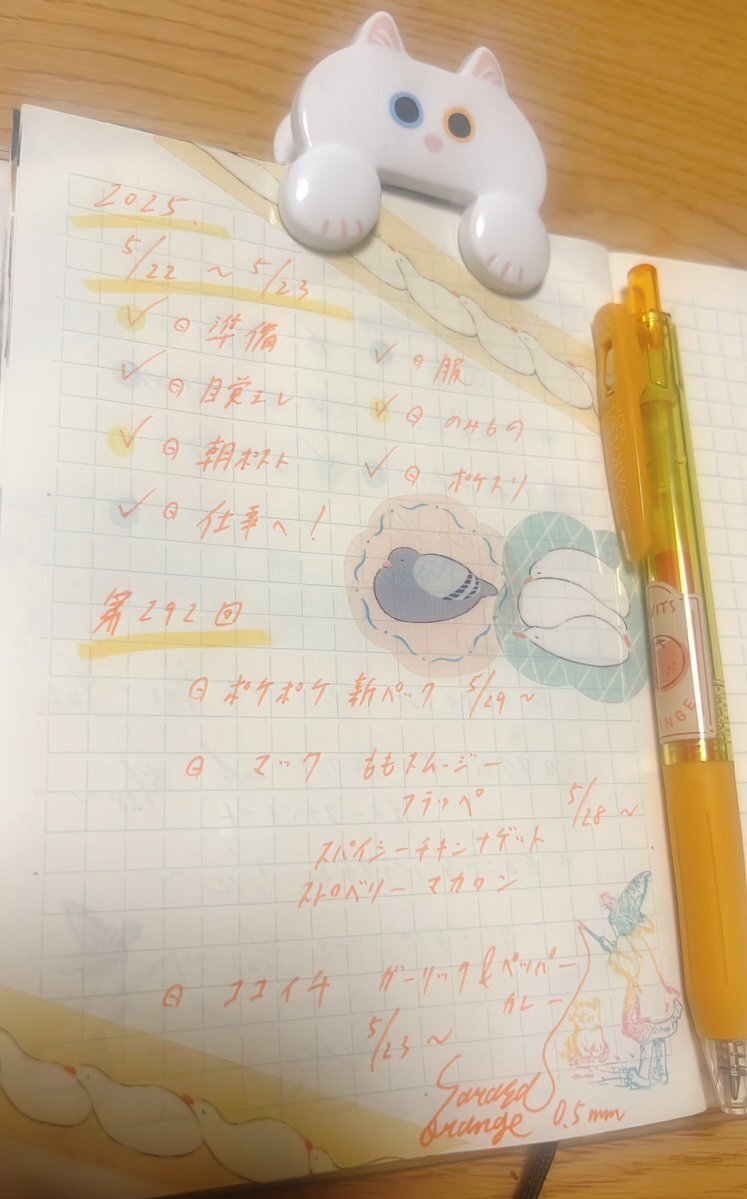 2025.
5/22 ~ 5/23
準備
服
目覚まし
のみもの
朝ポスト
ポケトリ
仕事へ!
第292回
ポケポケ 新パック 5/29~
マック ももスムージー
フラッペ
5/28~
スパイシーチキンナゲット
ストロベリーマカロン
ココイチ ガーリック&ペッパー
カレー
5/23~
orange 0.5mm